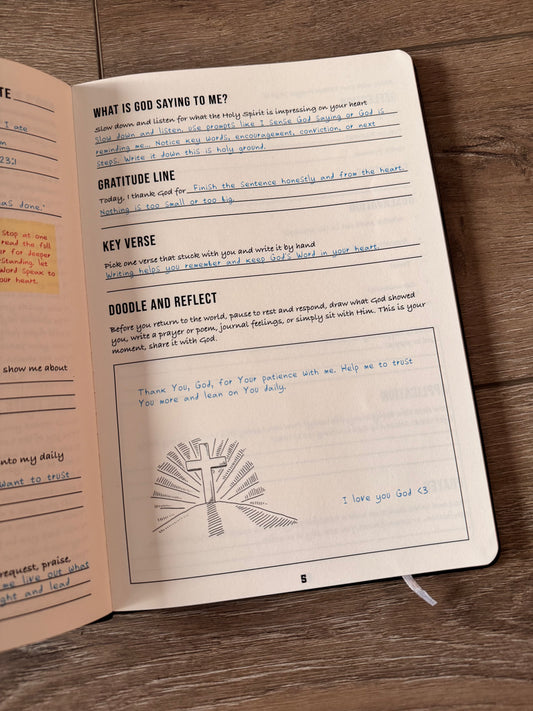 TE
I ate
23:1
as done."
Stop at one
read the full
er for deeper
standing. Let
Word speak to
our heart.
show me about
nto my daily
want to trust
request, praise,
me live out what
ght and lead
WHAT IS GOD SAYING TO ME?
Slow down and listen for what the Holy Spirit is impressing on your heart
Slow down and listen. Use prompts like I sense God saying or God is
reminding me... Notice key words, encouragement, conviction, or next
steps. Write it down this is holy ground.
GRATITUDE LINE
Today, I thank God for Finish the sentence honestly and from the heart.
Nothing is too small or too big.
KEY VERSE
Pick one verse that stuck with you and write it by hand
Writing helps you remember and keep God's Word in your heart.
DOODLE AND REFLECT
Before you return to the world, pause to rest and respond, draw what God showed
you, write a prayer or poem, journal feelings, or simply sit with Him. This is your
moment, share it with God.
Thank You, God, for Your patience with me. Help me to trust
You more and lean on You daily.
I love you God <3
5